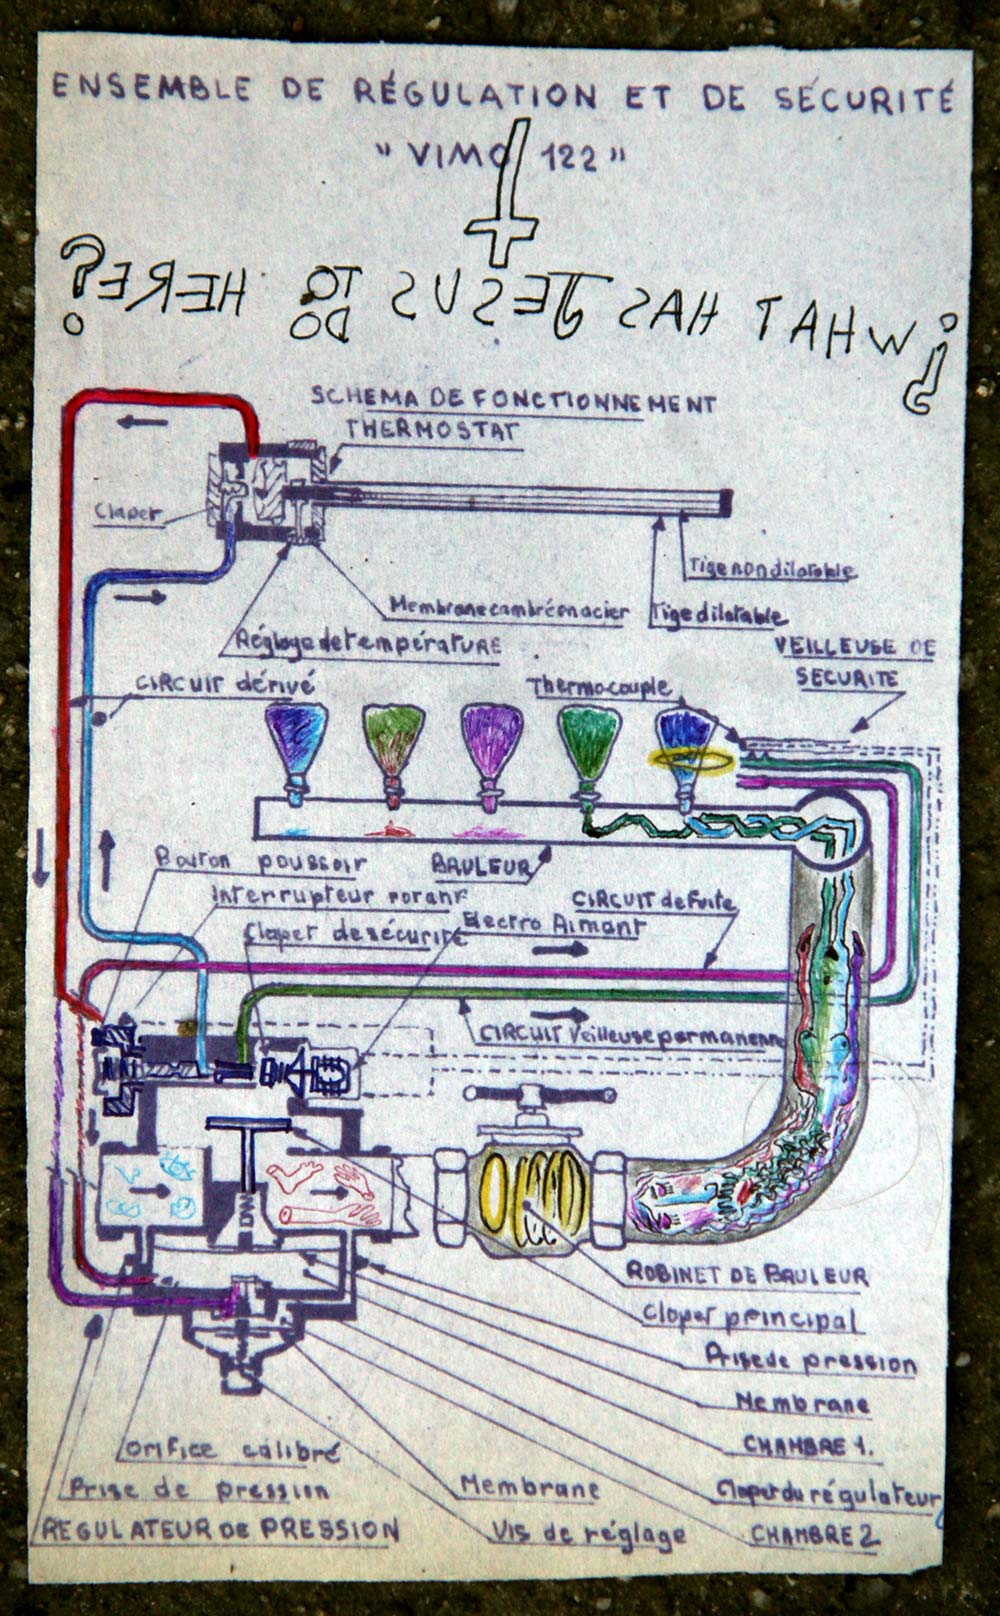 ENSEMBLE DE RÉGULATION ET DE SÉCURITÉ
" VIMO 122 "
¿WHAT HAS JESUS TO DO HERE?
SCHEMA DE FONCTIONNEMENT
THERMOSTAT
Claper
Tige non dilatable
Membrane cambrée en acier
Tige dilatable
Réglage de température
VEILLEUSE DE
SECURITE
CIRCUIT dérivé
Thermocouple
Bouton poussoir
BRULEUR
Interrupteur rotant
CIRCUIT de fuite
Clapet de sécurité
Electro Aimant
CIRCUIT Veilleuse permanente
ROBINET DE BRULEUR
Clapet principal
Prise de pression
Membrane
CHAMBRE 1.
Orifice calibré
Prise de pression
Membrane
Clapet du régulateur
REGULATEUR DE PRESSION
Vis de réglage
CHAMBRE 2